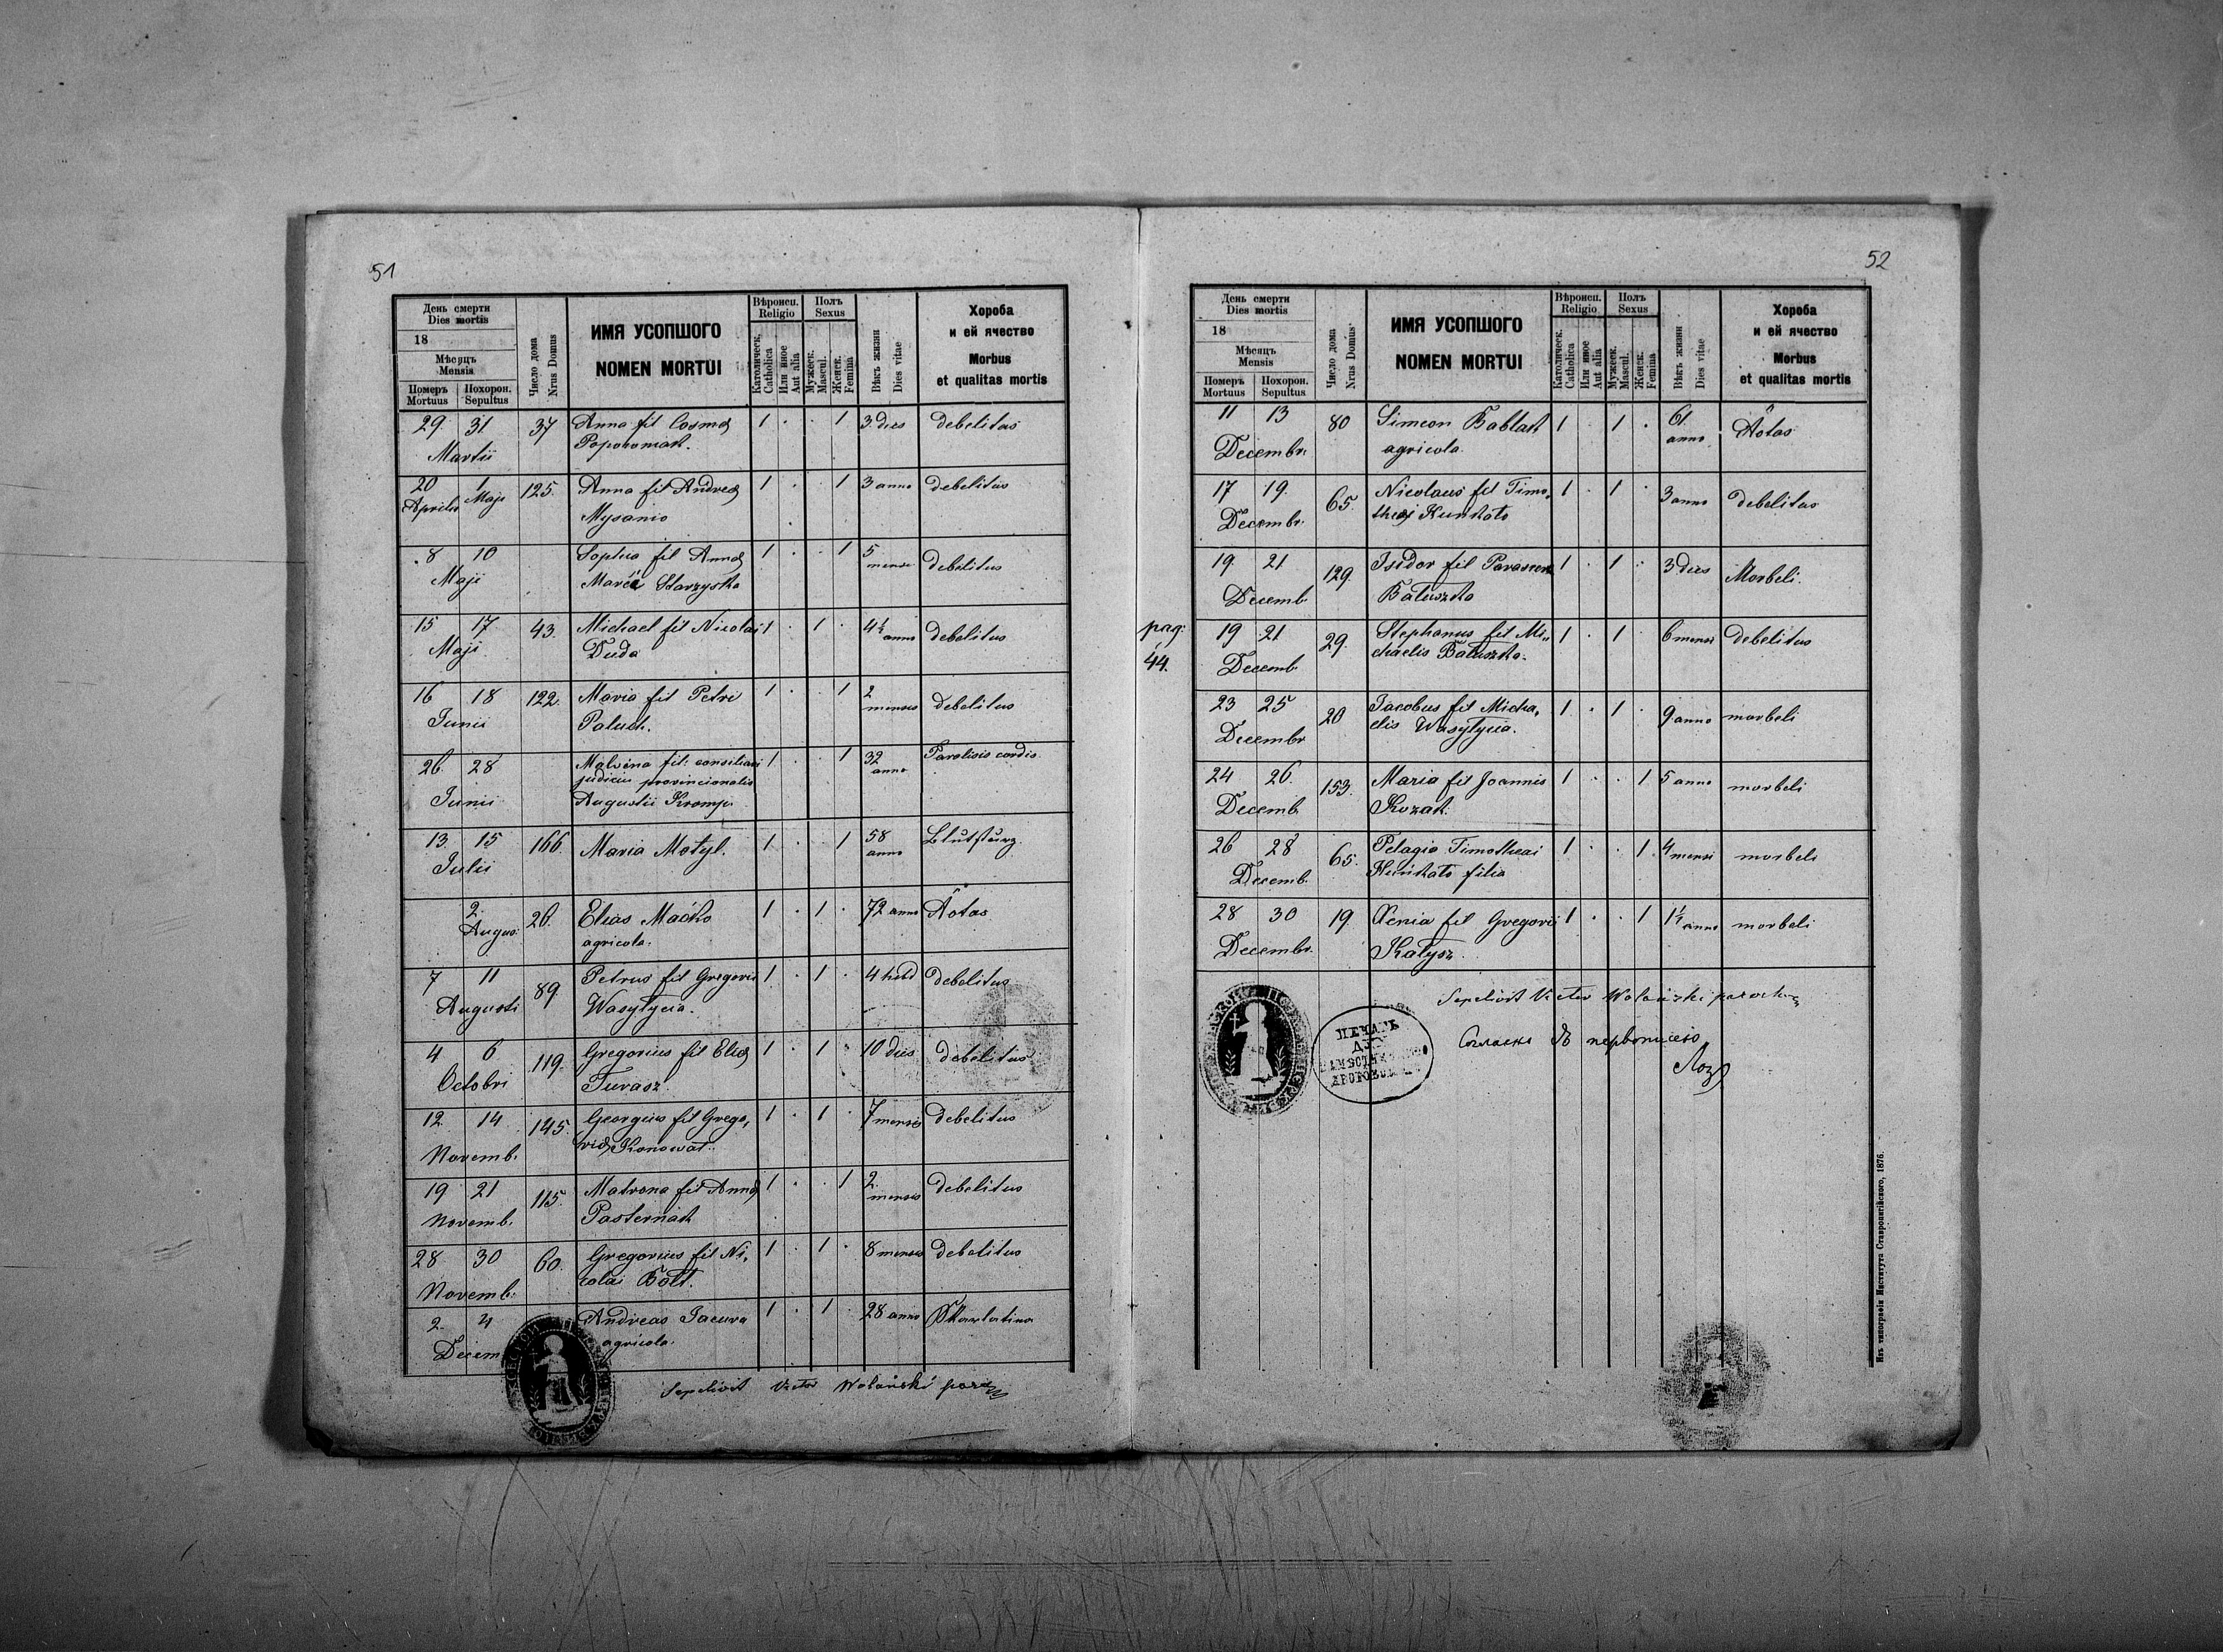 51
День смерти
Dies mortis
18
Мѣсяцъ
Mensis
Померъ
Mortuus
Похорон.
Sepultus
Число дома
Nrus Domus
ИМЯ УСОПШОГО
NOMEN MORTUI
Вѣроисп.
Religio
Католическ.
Catholica
Или иное
Aut alia
Полъ
Sexus
Мужеск.
Mascul.
Женск.
Femina
Вѣкъ жизни
Dies vitae
Хороба
и ей ячество
Morbus
et qualitas mortis
29 31 37 Anna fil Cosmae 1 . . 1 3 dies debelitas
Martii
20 1 125. Anna fil Andreae 1 . . 1 3 anno debelitas
Aprilis Maji Mysanio
8 10 Sophia fil Annae 1 . . 1 5 mense debelitas
Maji Starzyska
15 17 43. Michael fil Nicolai 1 . 1 . 4½ anno debelitas
Maji Duda
16 18 122. Maria fil Petri 1 . . 1 2 mensis debelitas
Junii Paluch.
26 28 Malvina fil: consiliari 1 . . 1 32 anno Paralisis cordis
judicii provincionalis
Junii Augustii Kromp
13 15 166. Maria Motyl. 1 . . 1 58 anno Blutsturz
Julii
2 26. Elias Maćko 1 . 1 . 72 anno Äotas
Augus: agricola.
7 11 89 Petrus fil Gregorii 1 . 1 . 4 debelitas
Augusti Wasylycia.
4 6 119. Gregorius fil Eliae 1 . 1 . 10 dies debelitas
Octobri Turasz
12 14 145. Georgius fil Grego, 1 . 1 . 7 mensis debelitas
Novemb. rii Konowal.
19 21 115. Matrona fil Annae 1 . . 1 2 mensis debelitas
Novemb. Pasternak
28 30 60. Gregorius fil Ni, 1 . 1 . 8 mensis debelitas
Novemb. colai Bałt.
2 4 Andreas Jacura 1 . 1 . 28 anno Skarlatina
Decem agricola.
Sepelivit Victor Wolański
52
День смерти
Dies mortis
18
Мѣсяцъ
Mensis
Померъ
Mortuus
Похорон.
Sepultus
Число дома
Nrus Domus
ИМЯ УСОПШОГО
NOMEN MORTUI
Вѣроисп.
Religio
Католическ.
Catholica
Или иное
Aut alia
Полъ
Sexus
Мужеск.
Mascul.
Женск.
Femina
Вѣкъ жизни
Dies vitae
Хороба
и ей ячество
Morbus
et qualitas mortis
11 13 80 Simeon Bablak 1 . 1 . 61 anno Äotas
Decembr. agricola.
17 19. 65. Nicolaus fil Timo, 1 . 1 . 3 anno debelitas
Decembr. thei Kunkało
19 21 129. Isidor fil 1 . 1 . 3 dies Morbeli.
Decemb. Bałuszka
pag: 44.
19 21 29. Stephanus fil Mi, 1 . 1 . 6 mensi debelitas
Decemb. chaelis Bałuszka.
23 25 20 Jacobus fil Micha, 1 . 1 . 9 anno morbeli
Decembr elis Wasylycia.
24 26. 153. Maria fil Joannis 1 . . 1 5 anno morbeli
Decemb Kozak.
26 28 65. Pelagia Timotheai 1 . . 1 4 mensi morbeli
Decemb. Kunkało filia
28 30 19. Xenia fil Gregorii 1 . . 1 1½ anno morbeli
Decembr. Kałysz.
Sepelivit Victor Wolański
ПЕЧАТЬ
Изъ типографіи Института Ставропигійского, 1876.